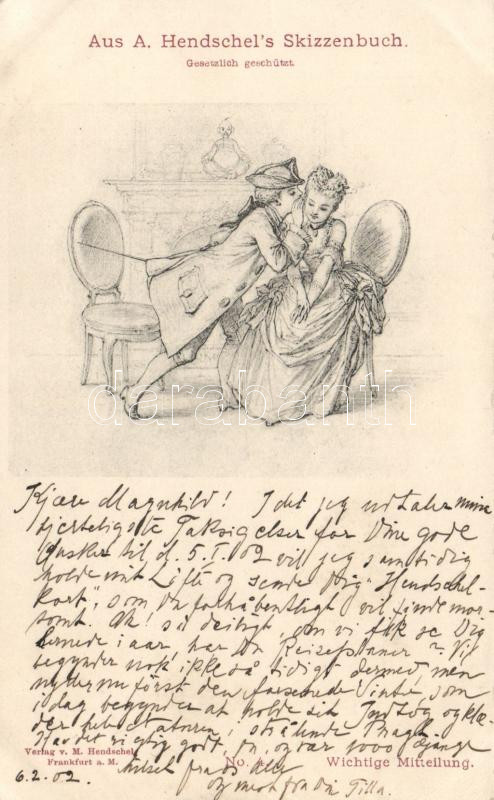 Aus A. Hendschel's Skizzenbuch.
Gesetzlich geschützt.
darabanth
Kjære Magnhild! I det jeg udtaler mine
hjerteligste Taksigelser for Dine gode
Ønsker til d. 5.I.02 vil jeg samtidig
holde mit Löfte og sende Dig "Hendschel-
kort", som Du forhåbentligt vil finde mor-
somt. Ak! så deiligt, om vi fik se Dig
hernede i aar, har Du Reiseplaner? Vi
begynder nok ikke så tidigt dermed, men
nyder nu först den Vinter, som
idag begynder at holde sit Indtog og klæ-
der
Har det rigtig godt, Du, og vær 1000 Gange
hilset fra os alle
og mest fra Din Tilla.
Verlag v. M. Hendschel
Frankfurt a. M.
No. 4.
Wichtige Mitteilung.
6.2.02.